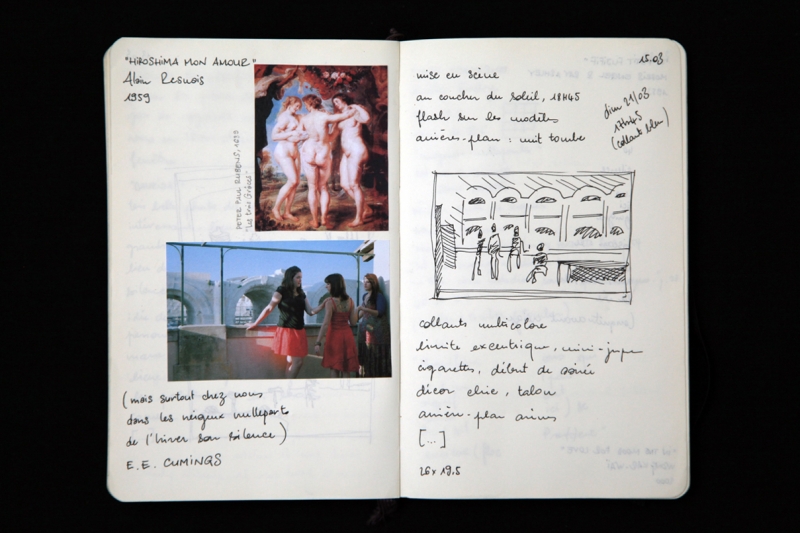 "HIROSHIMA MON AMOUR"
Alain Resnais
1959
PETER PAUL RUBENS,
"Les trois Grâces"
(mais surtout chez nous
dans les neigeux nulleparts
de l'hiver son silence)
E.E. CUMINGS
15.03
mise en scène
au coucher du soleil, 18H45
flash sur les modèles
arrières-plan : nuit tombe
dim 21/03
17h45
(collants bleu)
collants multicolore
limite excentrique, mini-jupe
cigarettes, début de soirée
décor chic, talon
arrière-plan animé
[...]
26 x 19.5